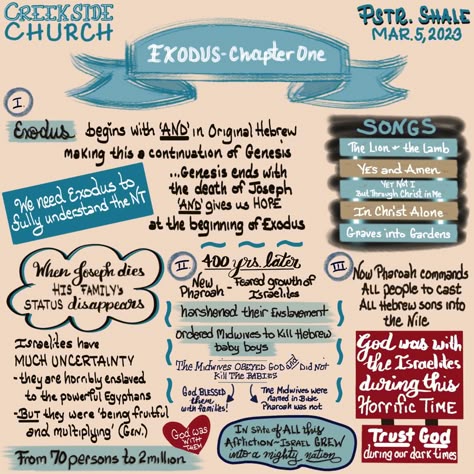 CREEKSIDE
CHURCH
PSTR. SHALE
MAR. 5, 2023
EXODUS-Chapter One
I
Exodus begins with 'AND' in Original Hebrew
making this a continuation of Genesis
...Genesis ends with
the death of Joseph
'AND' gives us HOPE
at the beginning of Exodus
We need Exodus to
fully understand the NT
SONGS
The Lion + the Lamb
Yes and Amen
Yet Not I
But Through Christ in Me
In Christ Alone
Graves into Gardens
When Joseph dies
HIS FAMILY'S
STATUS disappears
Israelites have
MUCH UNCERTAINTY
-they are horribly enslaved
to the powerful Egyptians
-BUT they were 'being fruitful
and multiplying' (Gen.)
From 70 persons to 2 million
II
400 yrs. later
New Pharaoh - Feared growth of
Israelites
harshened their Enslavement
ordered Midwives to kill Hebrew
baby boys
The Midwives OBEYED GOD and Did Not
Kill the Babies
God BLESSED
them
with families!
The Midwives were
named in Bible
Pharaoh was not
God was
WITH
THEM
In spite of ALL this
Affliction-Israel GREW
into a mighty nation
III
Now Pharaoh commands
All people to cast
All Hebrew sons into
the Nile
God was with
the Israelites
during this
Horrific Time
Trust God
during our dark times